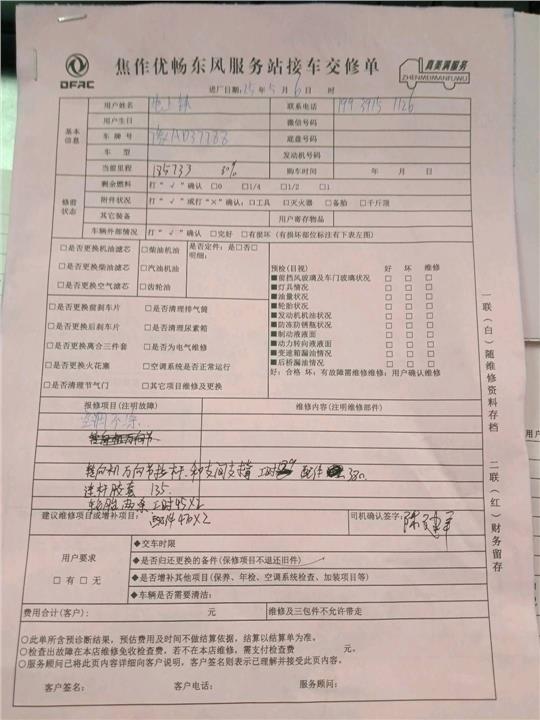 DFAC
焦作优畅东风服务站接车交修单
真美满服务
ZHENMEIMANFUWU
进厂日期: 25年5月6日 时
基本信息
用户姓名
联系电话 199 3915 1126
用户生日
微信号码
车牌号
底盘号码
车型
发动机号码
当前里程 135733 30%
购车时间 年 月 日
修前状态
剩余燃料 打“√”确认 □0 □1/4 □1/2 □1
附件状况 打“√”或打“×”确认:□工具 □灭火器 □备胎 □千斤顶
其它装备
用户寄存物品
车辆外部情况 打“√”确认 □完好 □有损坏(有损坏部位标注有下表左图)
□是否更换机油滤芯 □柴油机油
□是否更换柴油滤芯 □汽油机油
□是否更换空气滤芯 □齿轮油
是否定件:是□否□
明细:
□是否更换前刹车片 □是否清理排气筒
□是否更换后刹车片 □是否清理尿素箱
□是否更换离合三件套 □是否为电气维修
□是否更换火花塞 □空调系统是否正常运行
□是否清理节气门 □其它项目维修及更换
预检(目视) 好 坏 维修
■前挡风玻璃及车门玻璃状况 □ □ □
■灯具情况 □ □ □
■油量状况 □ □ □
■轮胎状况 □ □ □
■发动机机油状况 □ □ □
■防冻防锈瓶状况 □ □ □
■制动液液面 □ □ □
■动力转向液液面 □ □ □
■变速箱漏油情况 □ □ □
■后桥漏油情况 □ □ □
好:合格 坏:有故障需维修维修:用户确认维修
报修项目(注明故障)
维修内容(注明维修部件)
空调不凉
转向机万向节拉杆 和支间支撑 工时 配件 380
连杆胶套 135.
轮胎两条 工时45×2
配件470×2
建议维修项目或增补项目:
司机确认签字:
用户要求
□有 □无
◆交车时限
◆是否归还更换的备件(保修项目不退还旧件)
◆是否增补其他项目(保养、年检、空调系统检查、加装项目等)
◆车辆是否需要清洁:
费用合计(客户): 元
维修及三包件不允许带走
○此单所含预诊断结果,预估费用及时间不做结算依据,结算以结算单为准。
○检查出故障在本店维修免收检查费,若不在本店维修,需支付检查费 元。
○服务顾问已将此页内容详细向客户说明,客户签名则表示已理解并接受此页内容。
客户签名: 客户电话: 服务顾问:
一联(白)随维修资料存档
二联(红)财务留存